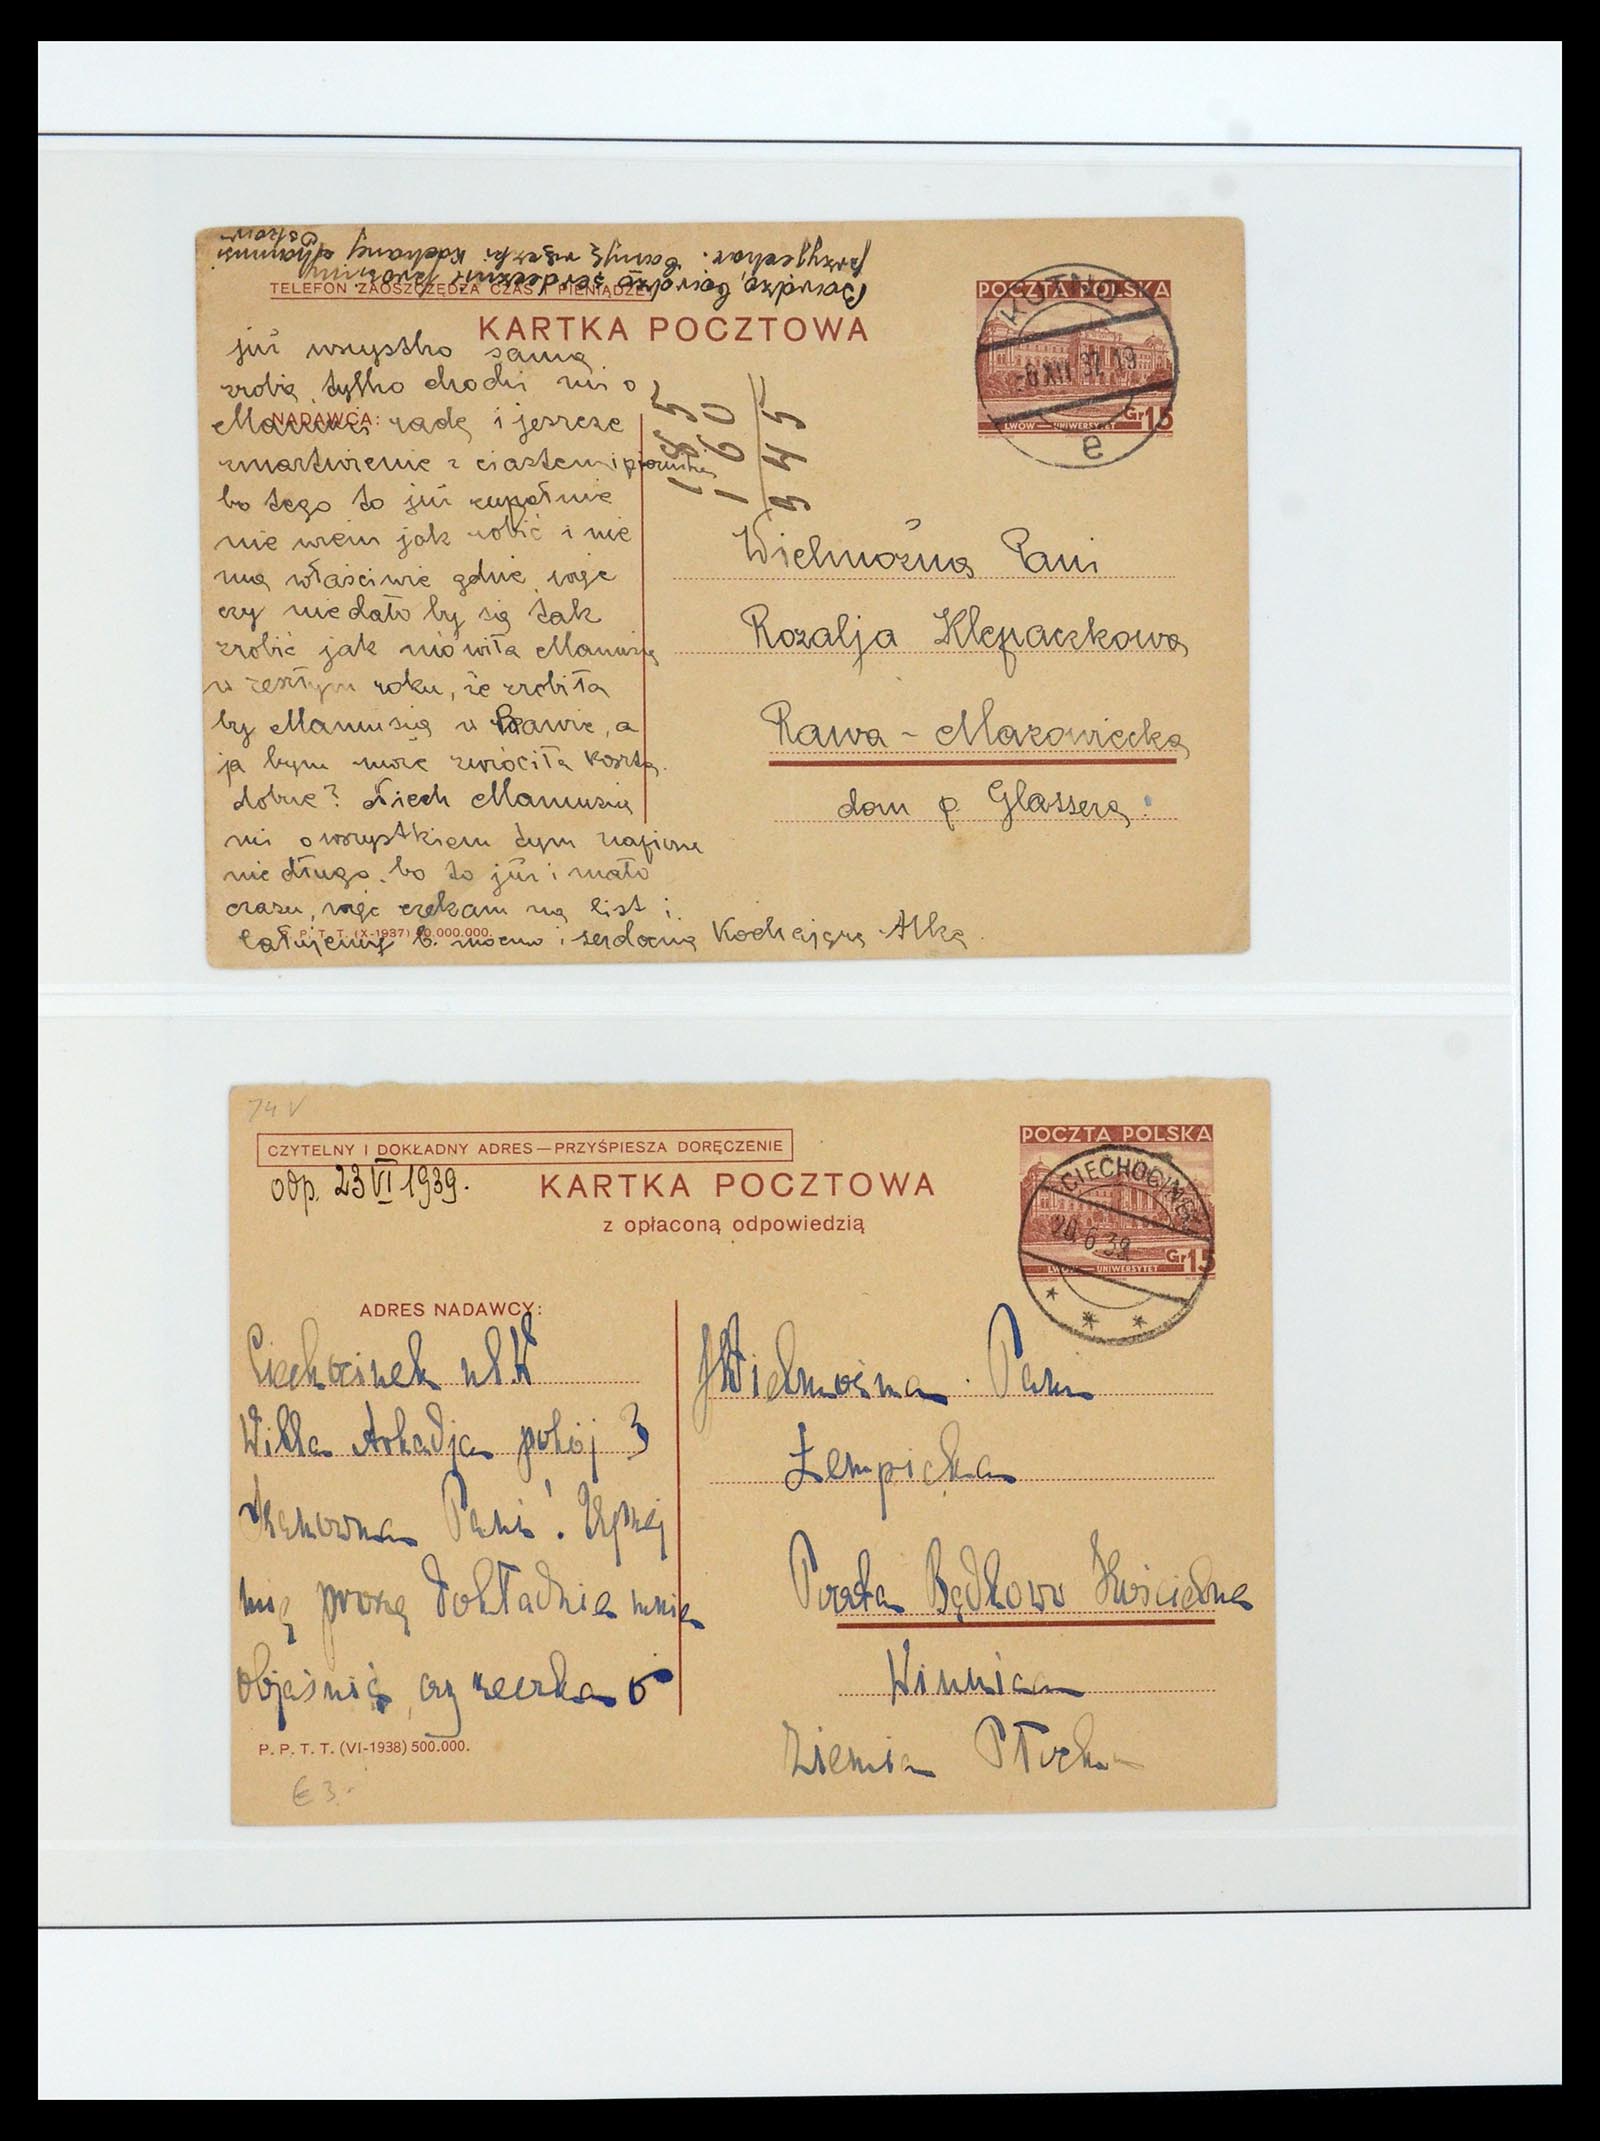 TELEFON ZAOSZCZĘDZA CZAS I PIENIĄDZE
KARTKA POCZTOWA
POCZTA POLSKA
KUTNO
-6 XII 37 19
e
Gr 15
LWÓW — UNIWERSYTET
już wszystko sama
zrobię, tylko chodzi mi o
NADAWCA:
radę i jeszcze
zmartwienie z ciastem i
bo tego to już zupełnie
nie wiem jak robić i nie
ma właściwie gdzie, więc
czy nie dało by się tak
zrobić jak mówiła Mamusia
w zeszłym roku, że zrobiła
by Mamusia w Rawie, a
ja bym zwróciła koszta.
dobrze? Niech Mamusia
mi o wszystkiem tym napisze
niedługo, bo to już i mało
czasu, więc czekam na list i
P. P. T. T. (X-1937) 000.000.
całujemy b. mocno i Kochająca Alka
185
160
345
Wielmożna Pani
Rozalja Klepaczkowa
Rawa - Mazowiecka
dom p. Glassera
74 V
CZYTELNY I DOKŁADNY ADRES — PRZYŚPIESZA DORĘCZENIE
odp. 23 VI 1939.
KARTKA POCZTOWA
z opłaconą odpowiedzią
POCZTA POLSKA
CIECHOCINEK
20.6.39
Gr 15
LWÓW — UNIWERSYTET
ADRES NADAWCY:
Ciechocinek ul.
Willa Arkadja pokój 3
Szanowna Pani!
proszę dokładnie mnie
objaśnić, czy rzeczka
P. P. T. T. (VI-1938) 500.000.
€ 3.-
JWielmożna Pani
Łempicka
Poczta Bądkowo Kościelne
Winnica
Ziemia Płocka